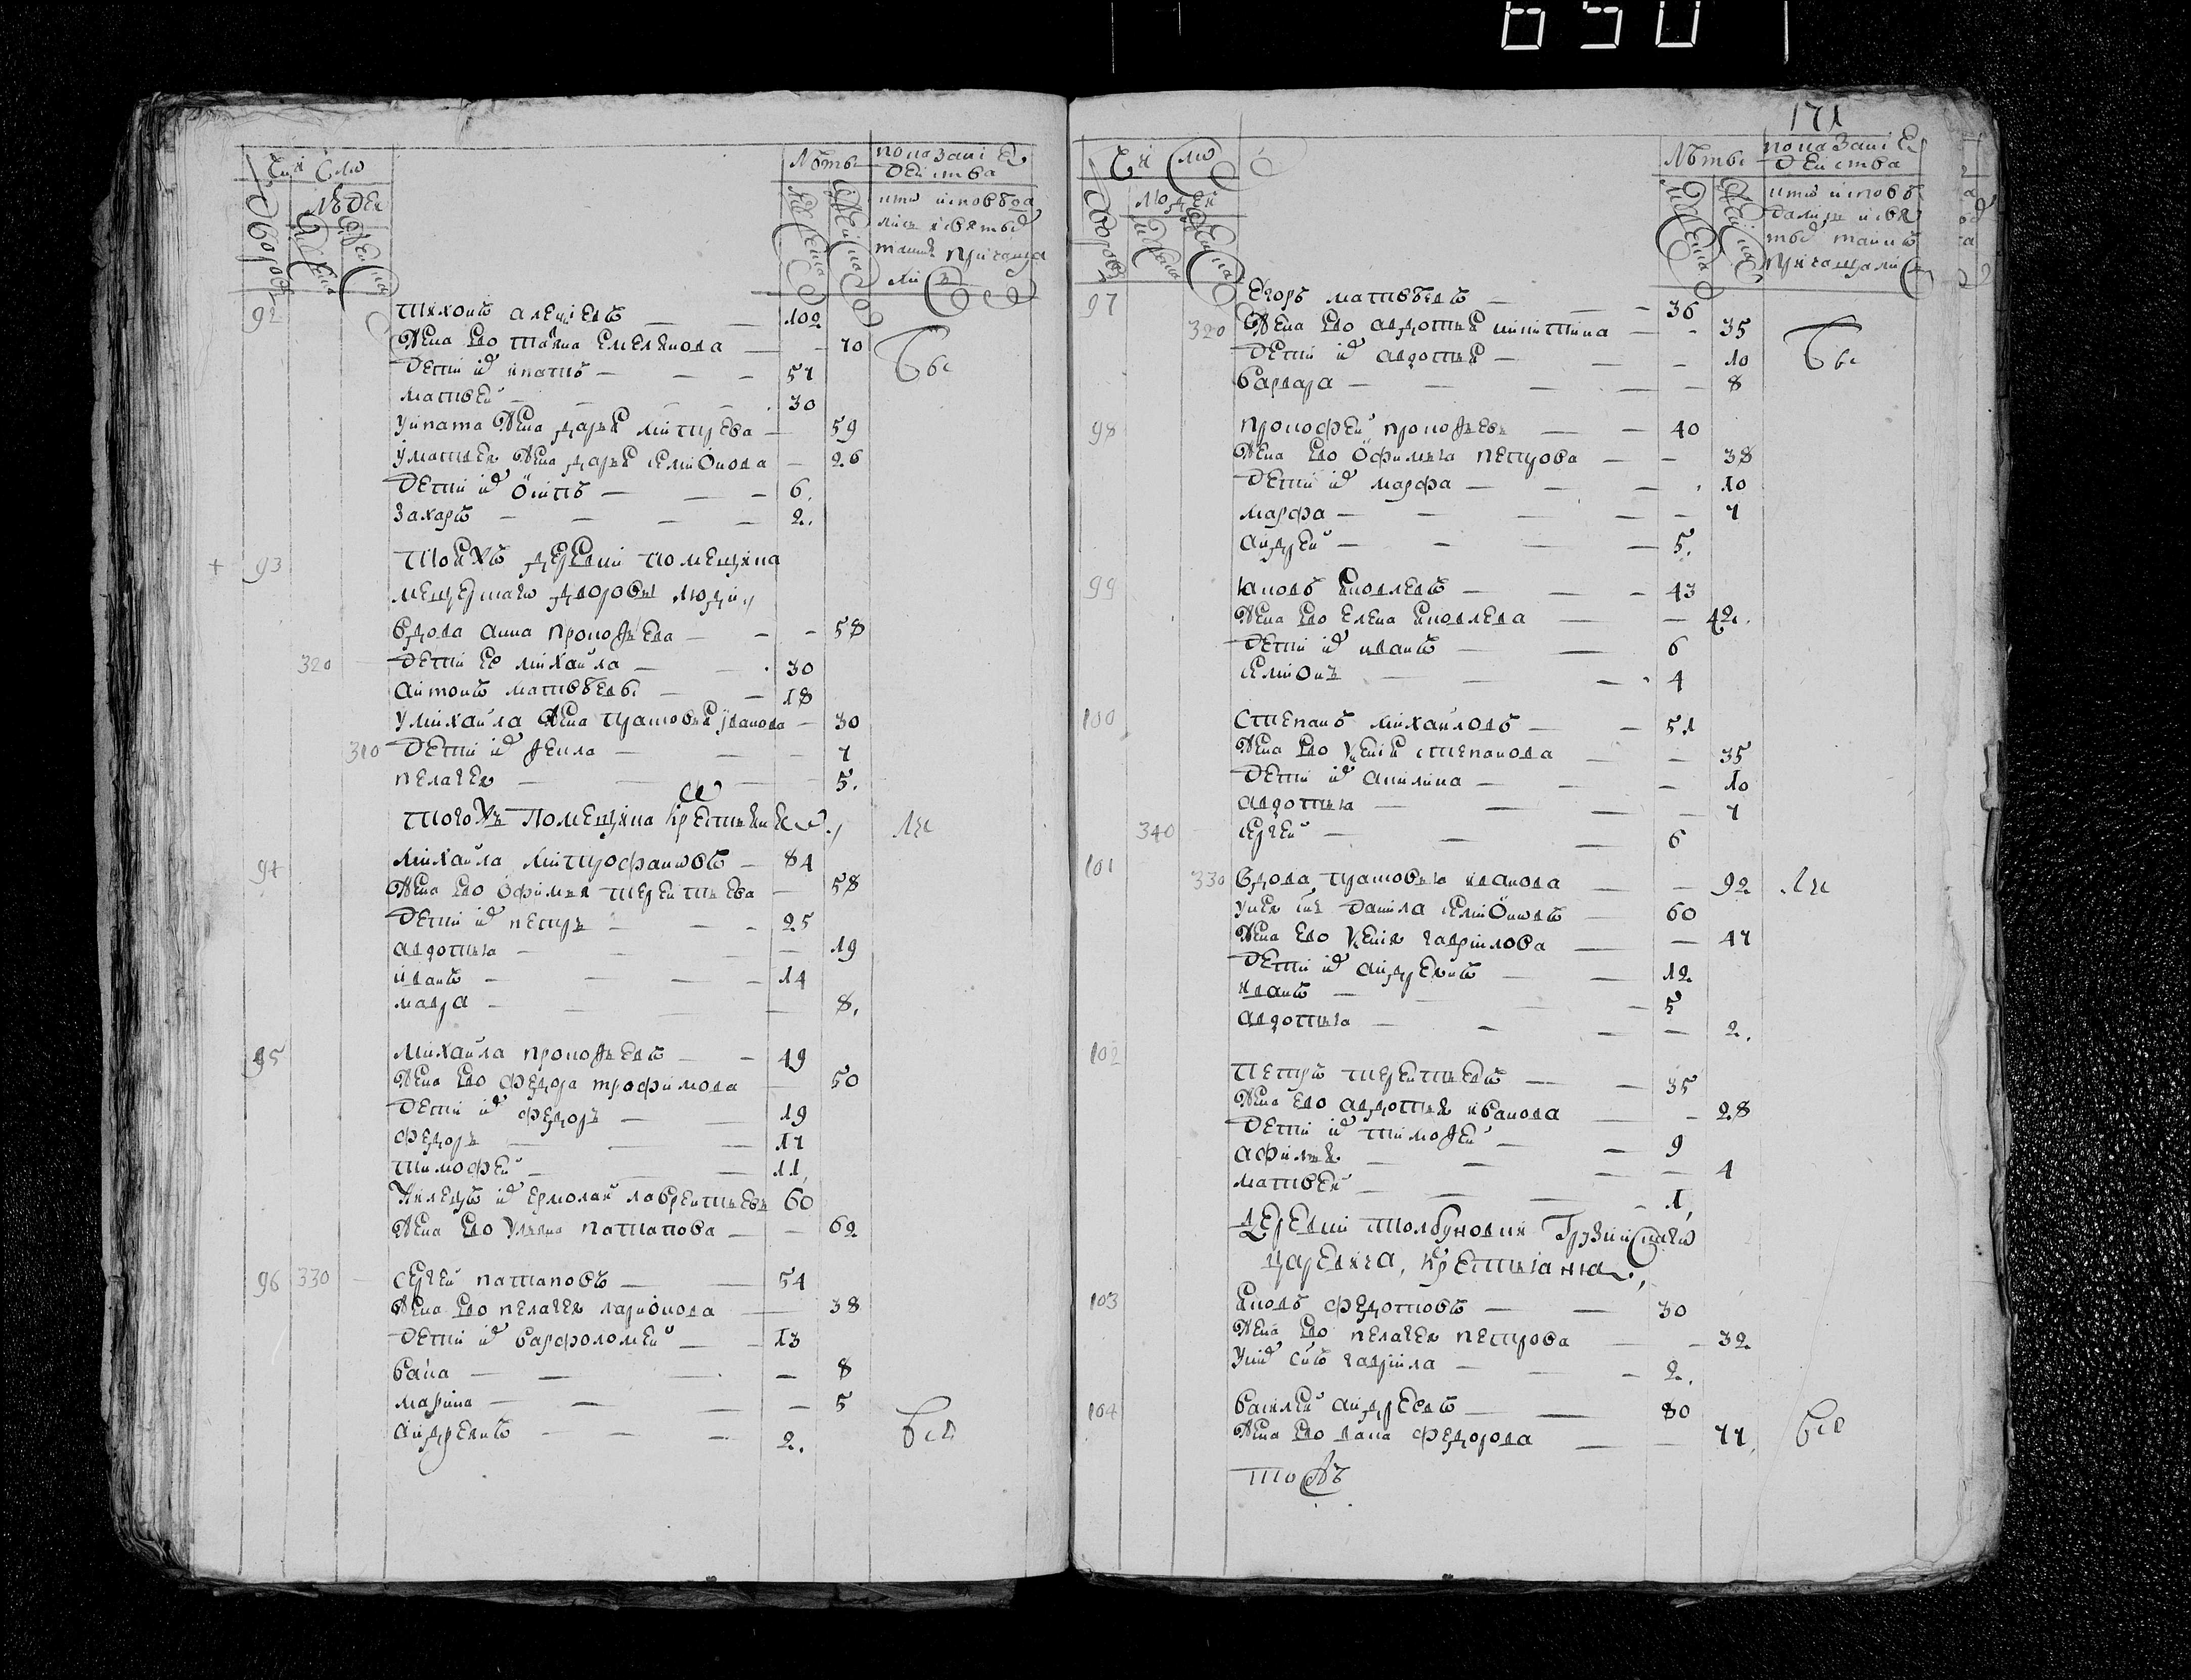 650
Число
Лѣты
показание
действа
Дворовъ
Людей
кто исповѣда
лись и святыхъ
таинъ причаща
лись
92
Тихонъ Алексѣевъ — 102
Жена ево Татiана Емельянова — 70
Дети их Ипатъ — 57
Матвей — 30
У Ипата жена Дарья Митрева — 59
У Матвея жена Дарья Семионова — 26
Дети их Осипъ — 6
Захаръ — 2
+ 93
Тояжъ деревни помещика
Мещерскаго дворовыя люди
Вдова Анна Прокофьева — 58
320 Дети ее Михайла — 30
Антонъ Матвѣевы — 18
У Михайла жена Прасковья Иванова — 30
310 Дети их Фекла — 7
Пелагея — 5
Тогожъ помещика крестьяне
94
Михайла Митрофановъ — 84
Жена ево Офимья Терентьева — 58
Дети их Петръ — 25
Авдотья — 19
Иванъ — 14
Мавра — 8
95
Михайла Прокофьевъ — 49
Жена ево Федора Трофимова — 50
Дети их Федоръ — 19
Федоръ — 17
Тимофей — 11
Жилецъ их Ермолай Лаврентьевъ 60
Жена ево Ульяна Патапова — 62
96 330 Сергей Патаповъ — 54
Жена ево Пелагея Ларионова — 38
Дети их Варфоломей — 13
Васа — 8
Марина — 5
Андреянъ — 2
171
Число
Лѣты
показание
действа
Дворовъ
Людей
кто исповѣ
дались и свя
тыхъ таинъ
причащались
97
Егоръ Матвѣевъ — 36
320 Жена ево Авдотья Никитина — 35
Дети их Авдотья — 10
Варвара — 8
98 Прокофей Прокофьевъ — 40
Жена ево Офимья Петрова — 38
Дети их Марфа — 10
Марфа — 7
Андрей — 5
99 Яковъ Яковлевъ — 43
Жена ево Елена Яковлева — 42
Дети их Иванъ — 6
Семионъ — 4
100 Степанъ Михайловъ — 51
Жена ево Ксения Степанова — 35
Дети их Акилина — 10
Авдотья — 7
340 Сергей — 6
101
330 Вдова Прасковья Иванова — 92
У нея снъ Данила Семионовъ — 60
Жена ево Ксения Гаврилова — 47
Дети их Андреянъ — 12
Иванъ — 5
Авдотья — 2
102
Петръ Терентьевъ — 35
Жена ево Авдотья Иванова — 28
Дети их Тимофей — 9
Афимья — 4
Матвей — 1
Деревни Толбуновки Грузинскаго
царевича, крестьяна
103 Яковъ Федотовъ — 30
Жена ево Пелагея Петрова — 32
У них снъ Гаврила — 2
104 Василей Андреевъ — 80
Жена ево Анна Федорова — 77
Тожъ